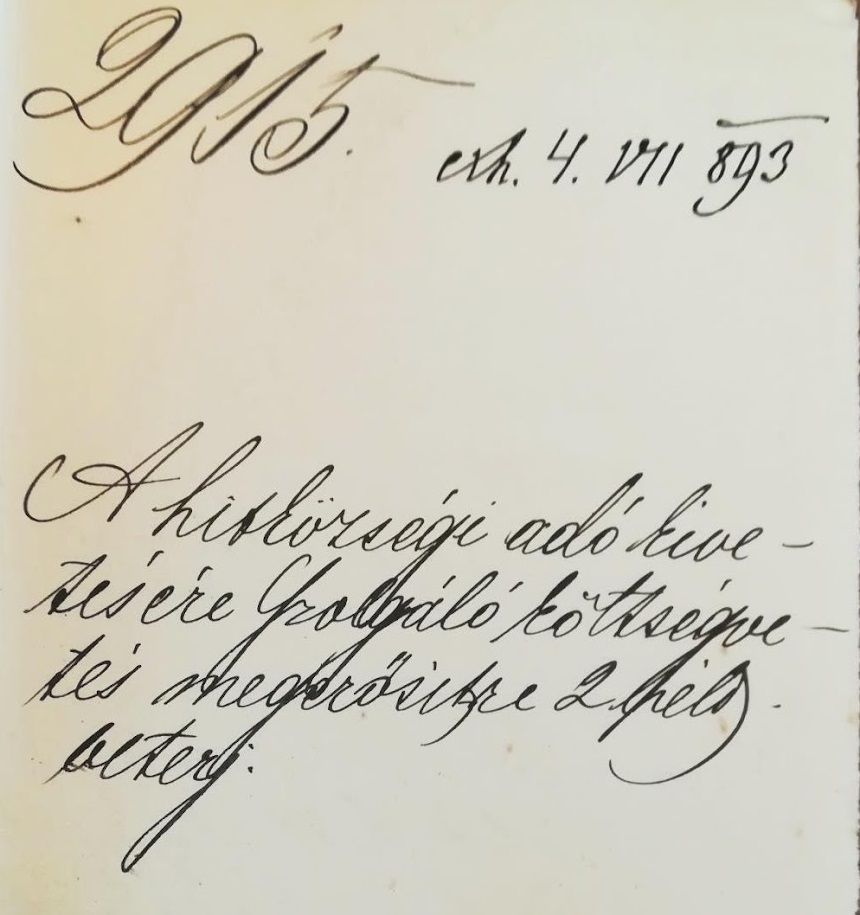 2915.
exh. 4. VII 893
A hitközségi adó kive-
tésére szolgáló költségve-
tés megerősitve 2 péld.
betérj.